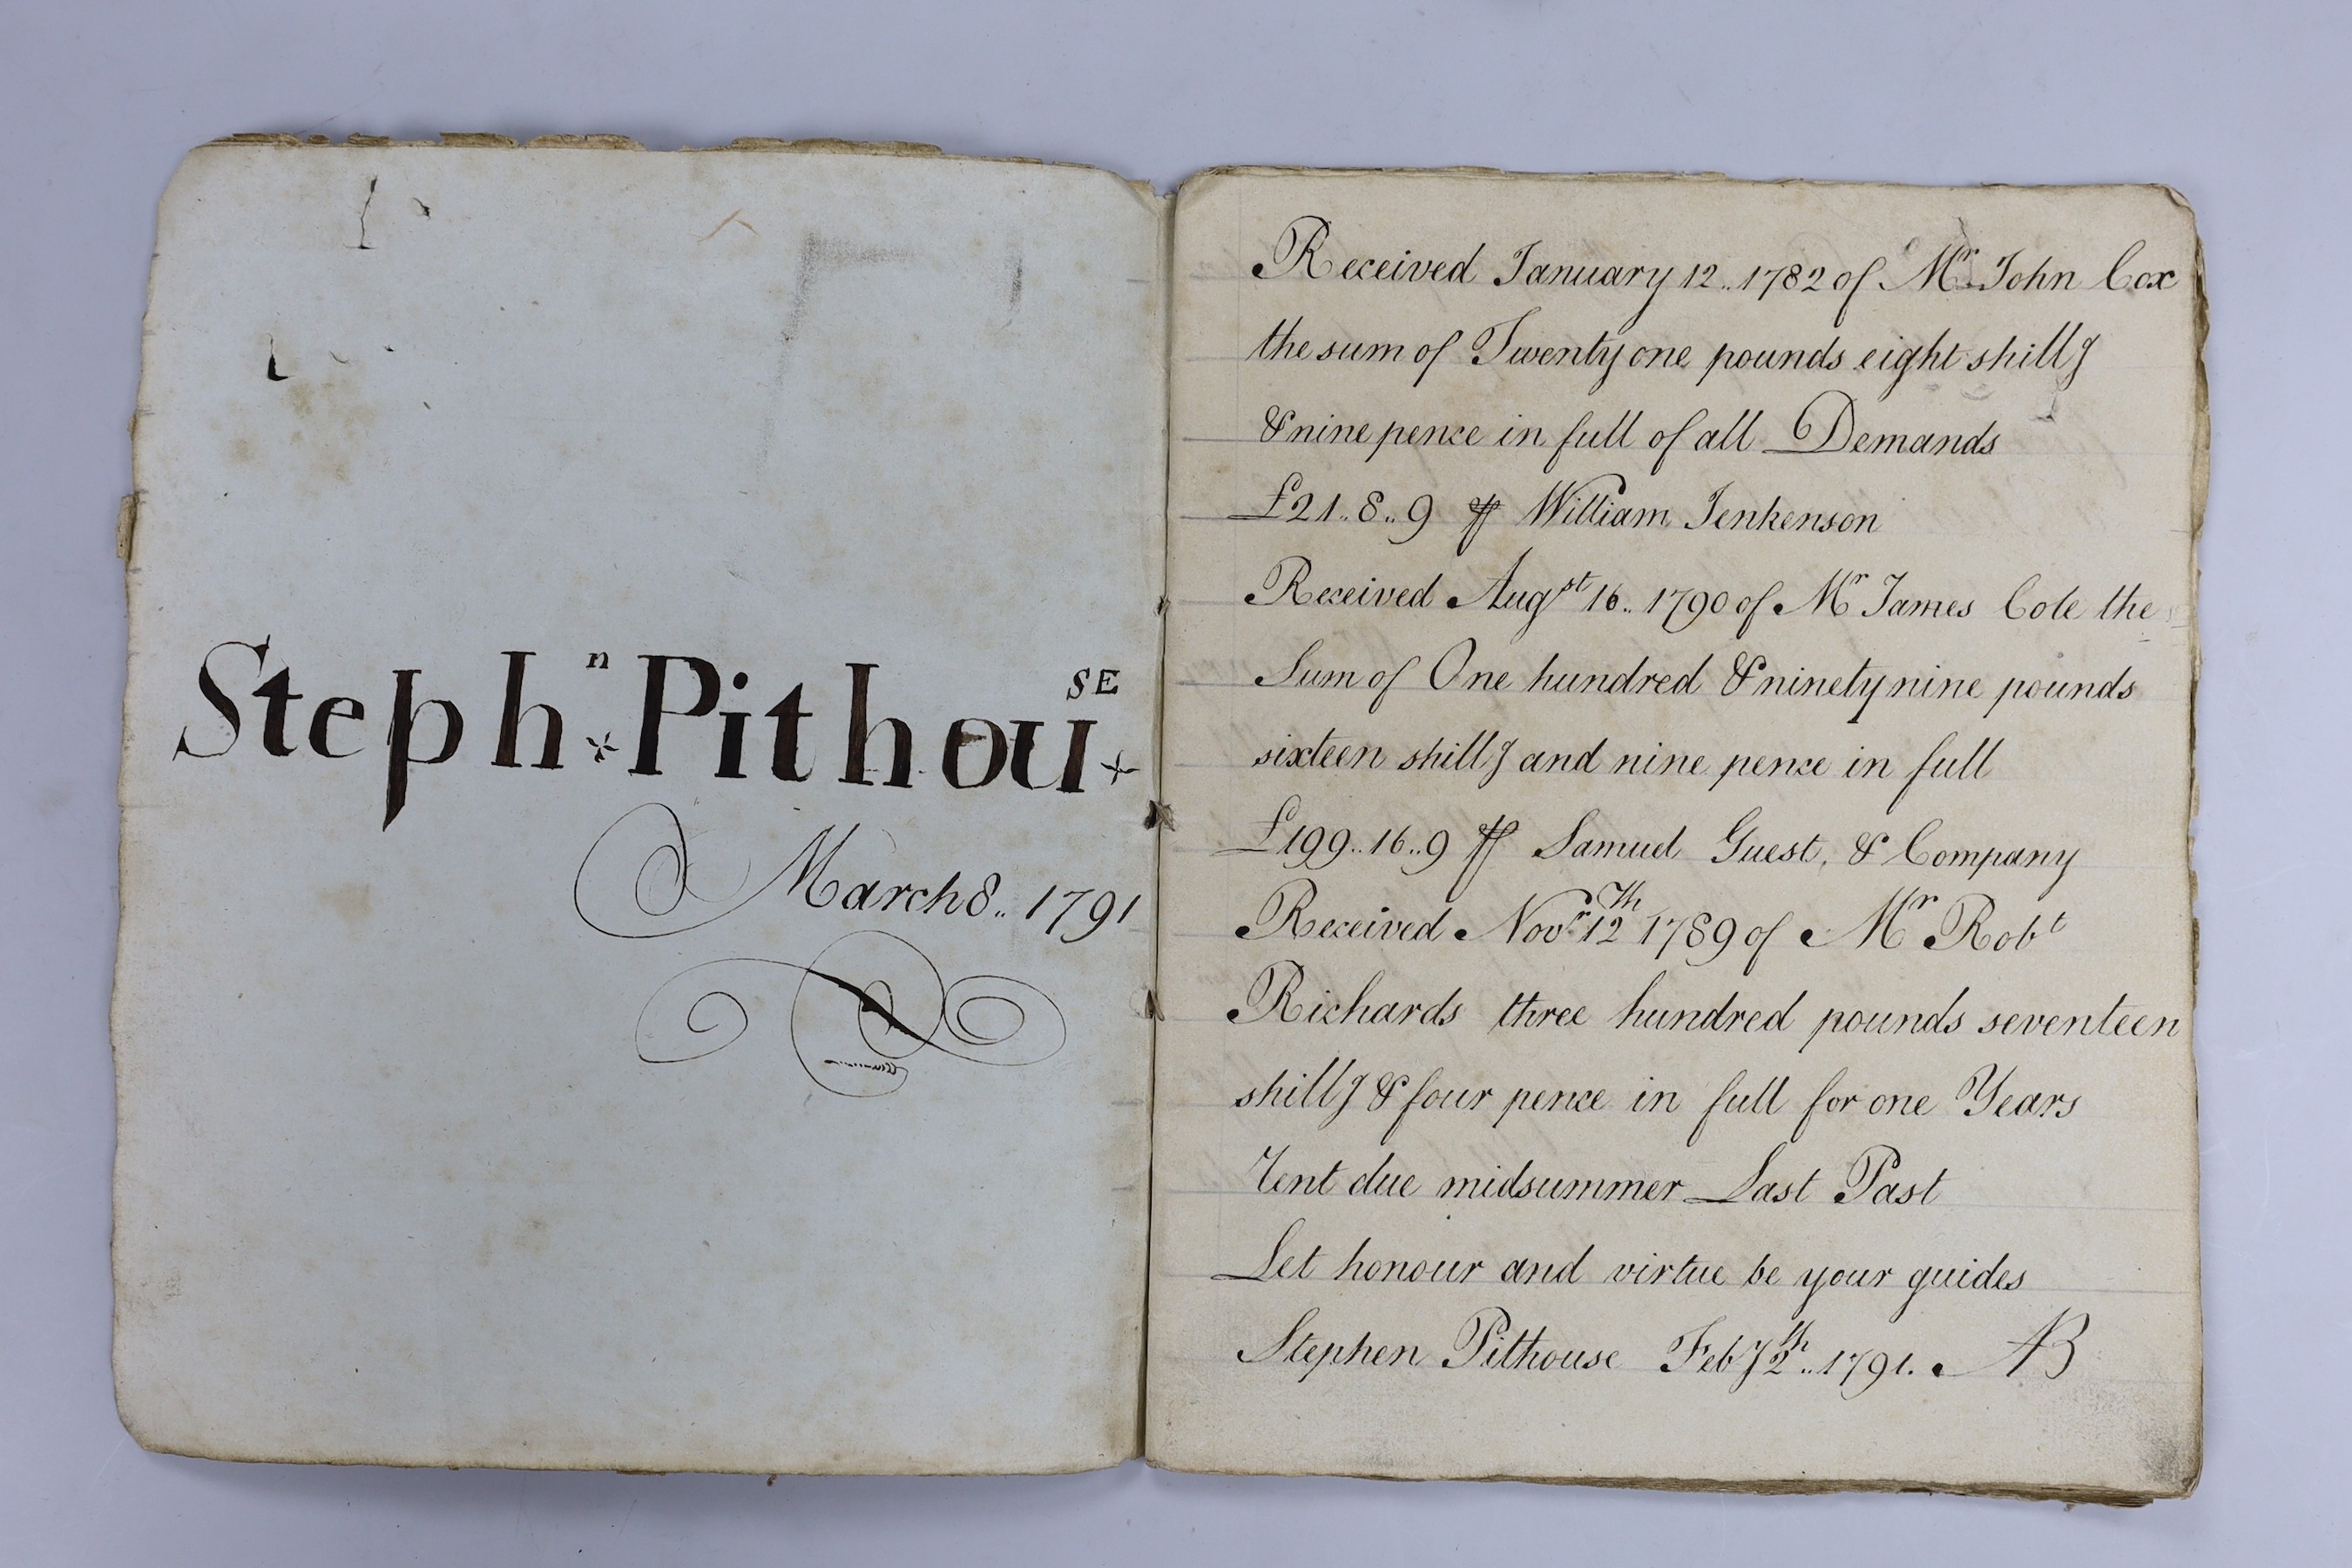 Steph.n Pithou.SE
March 8.. 1791
Received January 12.. 1782 of Mr. John Cox
the sum of Twenty one pounds eight shillgs
& nine pence in full of all Demands
£21.. 8.. 9 ℔ William Jenkenson
Received Augst 16.. 1790 of Mr James Cole the
Sum of One hundred & ninety nine pounds
sixteen shillgs and nine pence in full
£199.. 16.. 9 ℔ Samuel Guest, & Company
Received Novr 12Th 1789 of Mr Robt
Richards three hundred pounds seventeen
shillgs & four pence in full for one Years
rent due midsummer Last Past
Let honour and virtue be your guides
Stephen Pithouse Feby 2th.. 1791. AB